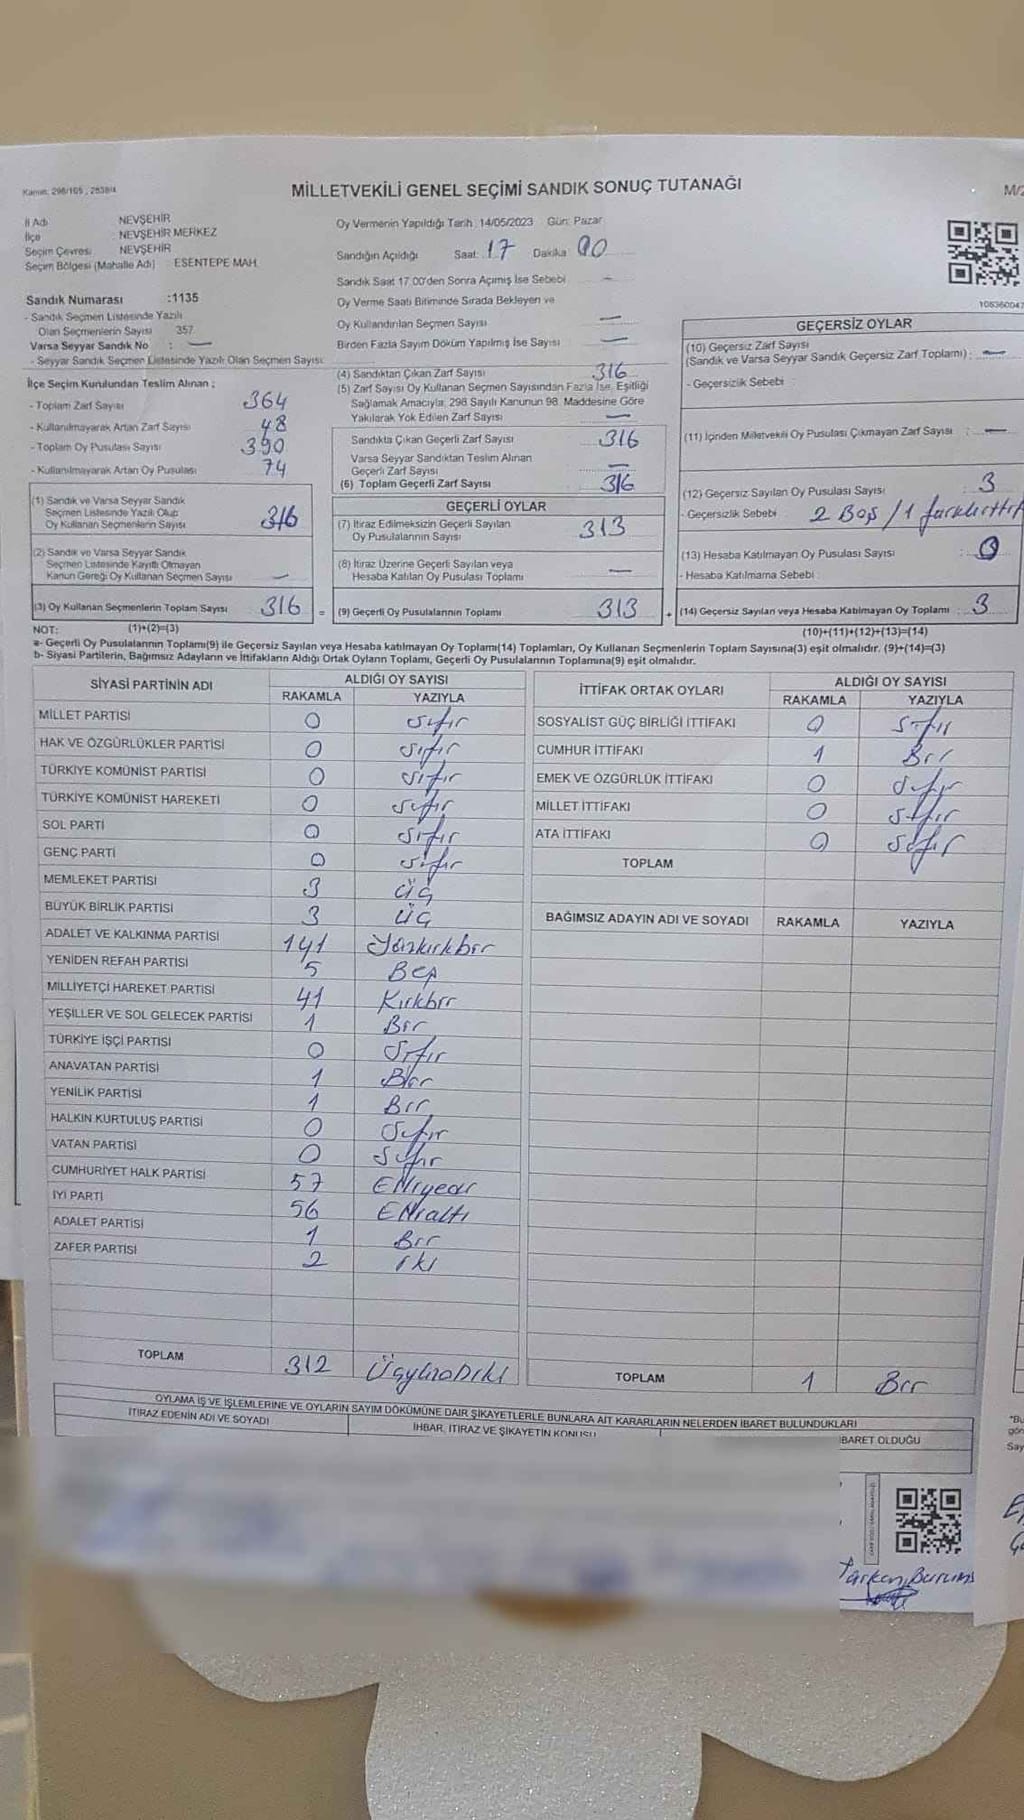 Kanun: 298/105 ; 2839/4
MİLLETVEKİLİ GENEL SEÇİMİ SANDIK SONUÇ TUTANAĞI
İl Adı NEVŞEHİR
İlçe NEVŞEHİR MERKEZ
Seçim Çevresi NEVŞEHİR
Seçim Bölgesi (Mahalle Adı) : ESENTEPE MAH.
Oy Vermenin Yapıldığı Tarih : 14/05/2023 Gün: Pazar
Sandığın Açıldığı Saat: 17 Dakika 00
Sandık Saat 17.00'den Sonra Açımış İse Sebebi —
Oy Verme Saati Bitiminde Sırada Bekleyen ve
Oy Kullandırılan Seçmen Sayısı —
Birden Fazla Sayım Döküm Yapılmış İse Sayısı —
Sandık Numarası :1135
- Sandık Seçmen Listesinde Yazılı
Olan Seçmenlerin Sayısı 357
Varsa Seyyar Sandık No : —
- Seyyar Sandık Seçmen Listesinde Yazılı Olan Seçmen Sayısı:
İlçe Seçim Kurulundan Teslim Alınan ;
- Toplam Zarf Sayısı 364
- Kullanılmayarak Artan Zarf Sayısı 48
- Toplam Oy Pusulası Sayısı 390
- Kullanılmayarak Artan Oy Pusulası 74
(1) Sandık ve Varsa Seyyar Sandık
Seçmen Listesinde Yazılı Olup
Oy Kullanan Seçmenlerin Sayısı 316
(2) Sandık ve Varsa Seyyar Sandık
Seçmen Listesinde Kayıtlı Olmayan
Kanun Gereği Oy Kullanan Seçmen Sayısı —
(3) Oy Kullanan Seçmenlerin Toplam Sayısı 316 =
(1)+(2)=(3)
(4) Sandıktan Çıkan Zarf Sayısı 316
(5) Zarf Sayısı Oy Kullanan Seçmen Sayısından Fazla İse, Eşitliği
Sağlamak Amacıyla, 298 Sayılı Kanunun 98. Maddesine Göre
Yakılarak Yok Edilen Zarf Sayısı —
Sandıkta Çıkan Geçerli Zarf Sayısı 316
Varsa Seyyar Sandıktan Teslim Alınan
Geçerli Zarf Sayısı —
(6) Toplam Geçerli Zarf Sayısı 316
GEÇERLİ OYLAR
(7) İtiraz Edilmeksizin Geçerli Sayılan
Oy Pusulalarının Sayısı 313
(8) İtiraz Üzerine Geçerli Sayılan veya
Hesaba Katılan Oy Pusulası Toplamı —
(9) Geçerli Oy Pusulalarının Toplamı 313 +
GEÇERSİZ OYLAR
(10) Geçersiz Zarf Sayısı
(Sandık ve Varsa Seyyar Sandık Geçersiz Zarf Toplamı) : —
- Geçersizlik Sebebi :
(11) İçinden Milletvekili Oy Pusulası Çıkmayan Zarf Sayısı : —
(12) Geçersiz Sayılan Oy Pusulası Sayısı : 3
- Geçersizlik Sebebi : 2 Boş / 1
(13) Hesaba Katılmayan Oy Pusulası Sayısı : 0
- Hesaba Katılmama Sebebi :
(14) Geçersiz Sayılan veya Hesaba Katılmayan Oy Toplamı : 3
(10)+(11)+(12)+(13)=(14)
NOT:
a- Geçerli Oy Pusulalarının Toplamı(9) ile Geçersiz Sayılan veya Hesaba katılmayan Oy Toplamı(14) Toplamları, Oy Kullanan Seçmenlerin Toplam Sayısına(3) eşit olmalıdır. (9)+(14)=(3)
b- Siyasi Partilerin, Bağımsız Adayların ve İttifakların Aldığı Ortak Oyların Toplamı, Geçerli Oy Pusulalarının Toplamına(9) eşit olmalıdır.
SİYASİ PARTİNİN ADI
ALDIĞI OY SAYISI
RAKAMLA YAZIYLA
MİLLET PARTİSİ 0 Sıfır
HAK VE ÖZGÜRLÜKLER PARTİSİ 0 Sıfır
TÜRKİYE KOMÜNİST PARTİSİ 0 Sıfır
TÜRKİYE KOMÜNİST HAREKETİ 0 Sıfır
SOL PARTİ 0 Sıfır
GENÇ PARTİ 0 Sıfır
MEMLEKET PARTİSİ 3 Üç
BÜYÜK BİRLİK PARTİSİ 3 Üç
ADALET VE KALKINMA PARTİSİ 141 Yüzkırkbir
YENİDEN REFAH PARTİSİ 5 Beş
MİLLİYETÇİ HAREKET PARTİSİ 41 Kırkbir
YEŞİLLER VE SOL GELECEK PARTİSİ 1 Bir
TÜRKİYE İŞÇİ PARTİSİ 0 Sıfır
ANAVATAN PARTİSİ 1 Bir
YENİLİK PARTİSİ 1 Bir
HALKIN KURTULUŞ PARTİSİ 0 Sıfır
VATAN PARTİSİ 0 Sıfır
CUMHURİYET HALK PARTİSİ 57 Elliyedi
İYİ PARTİ 56 Ellialtı
ADALET PARTİSİ 1 Bir
ZAFER PARTİSİ 2 iki
TOPLAM 312 Üçyüzoniki
İTTİFAK ORTAK OYLARI
ALDIĞI OY SAYISI
RAKAMLA YAZIYLA
SOSYALİST GÜÇ BİRLİĞİ İTTİFAKI 0 Sıfır
CUMHUR İTTİFAKI 1 Bir
EMEK VE ÖZGÜRLÜK İTTİFAKI 0 Sıfır
MİLLET İTTİFAKI 0 Sıfır
ATA İTTİFAKI 0 Sıfır
TOPLAM
BAĞIMSIZ ADAYIN ADI VE SOYADI RAKAMLA YAZIYLA
TOPLAM 1 Bir
OYLAMA İŞ VE İŞLEMLERİNE VE OYLARIN SAYIM DÖKÜMÜNE DAİR ŞİKAYETLERLE BUNLARA AİT KARARLARIN NELERDEN İBARET BULUNDUKLARI
İTİRAZ EDENİN ADI VE SOYADI
İHBAR, İTİRAZ VE ŞİKAYETİN KONUSU
İBARET OLDUĞU